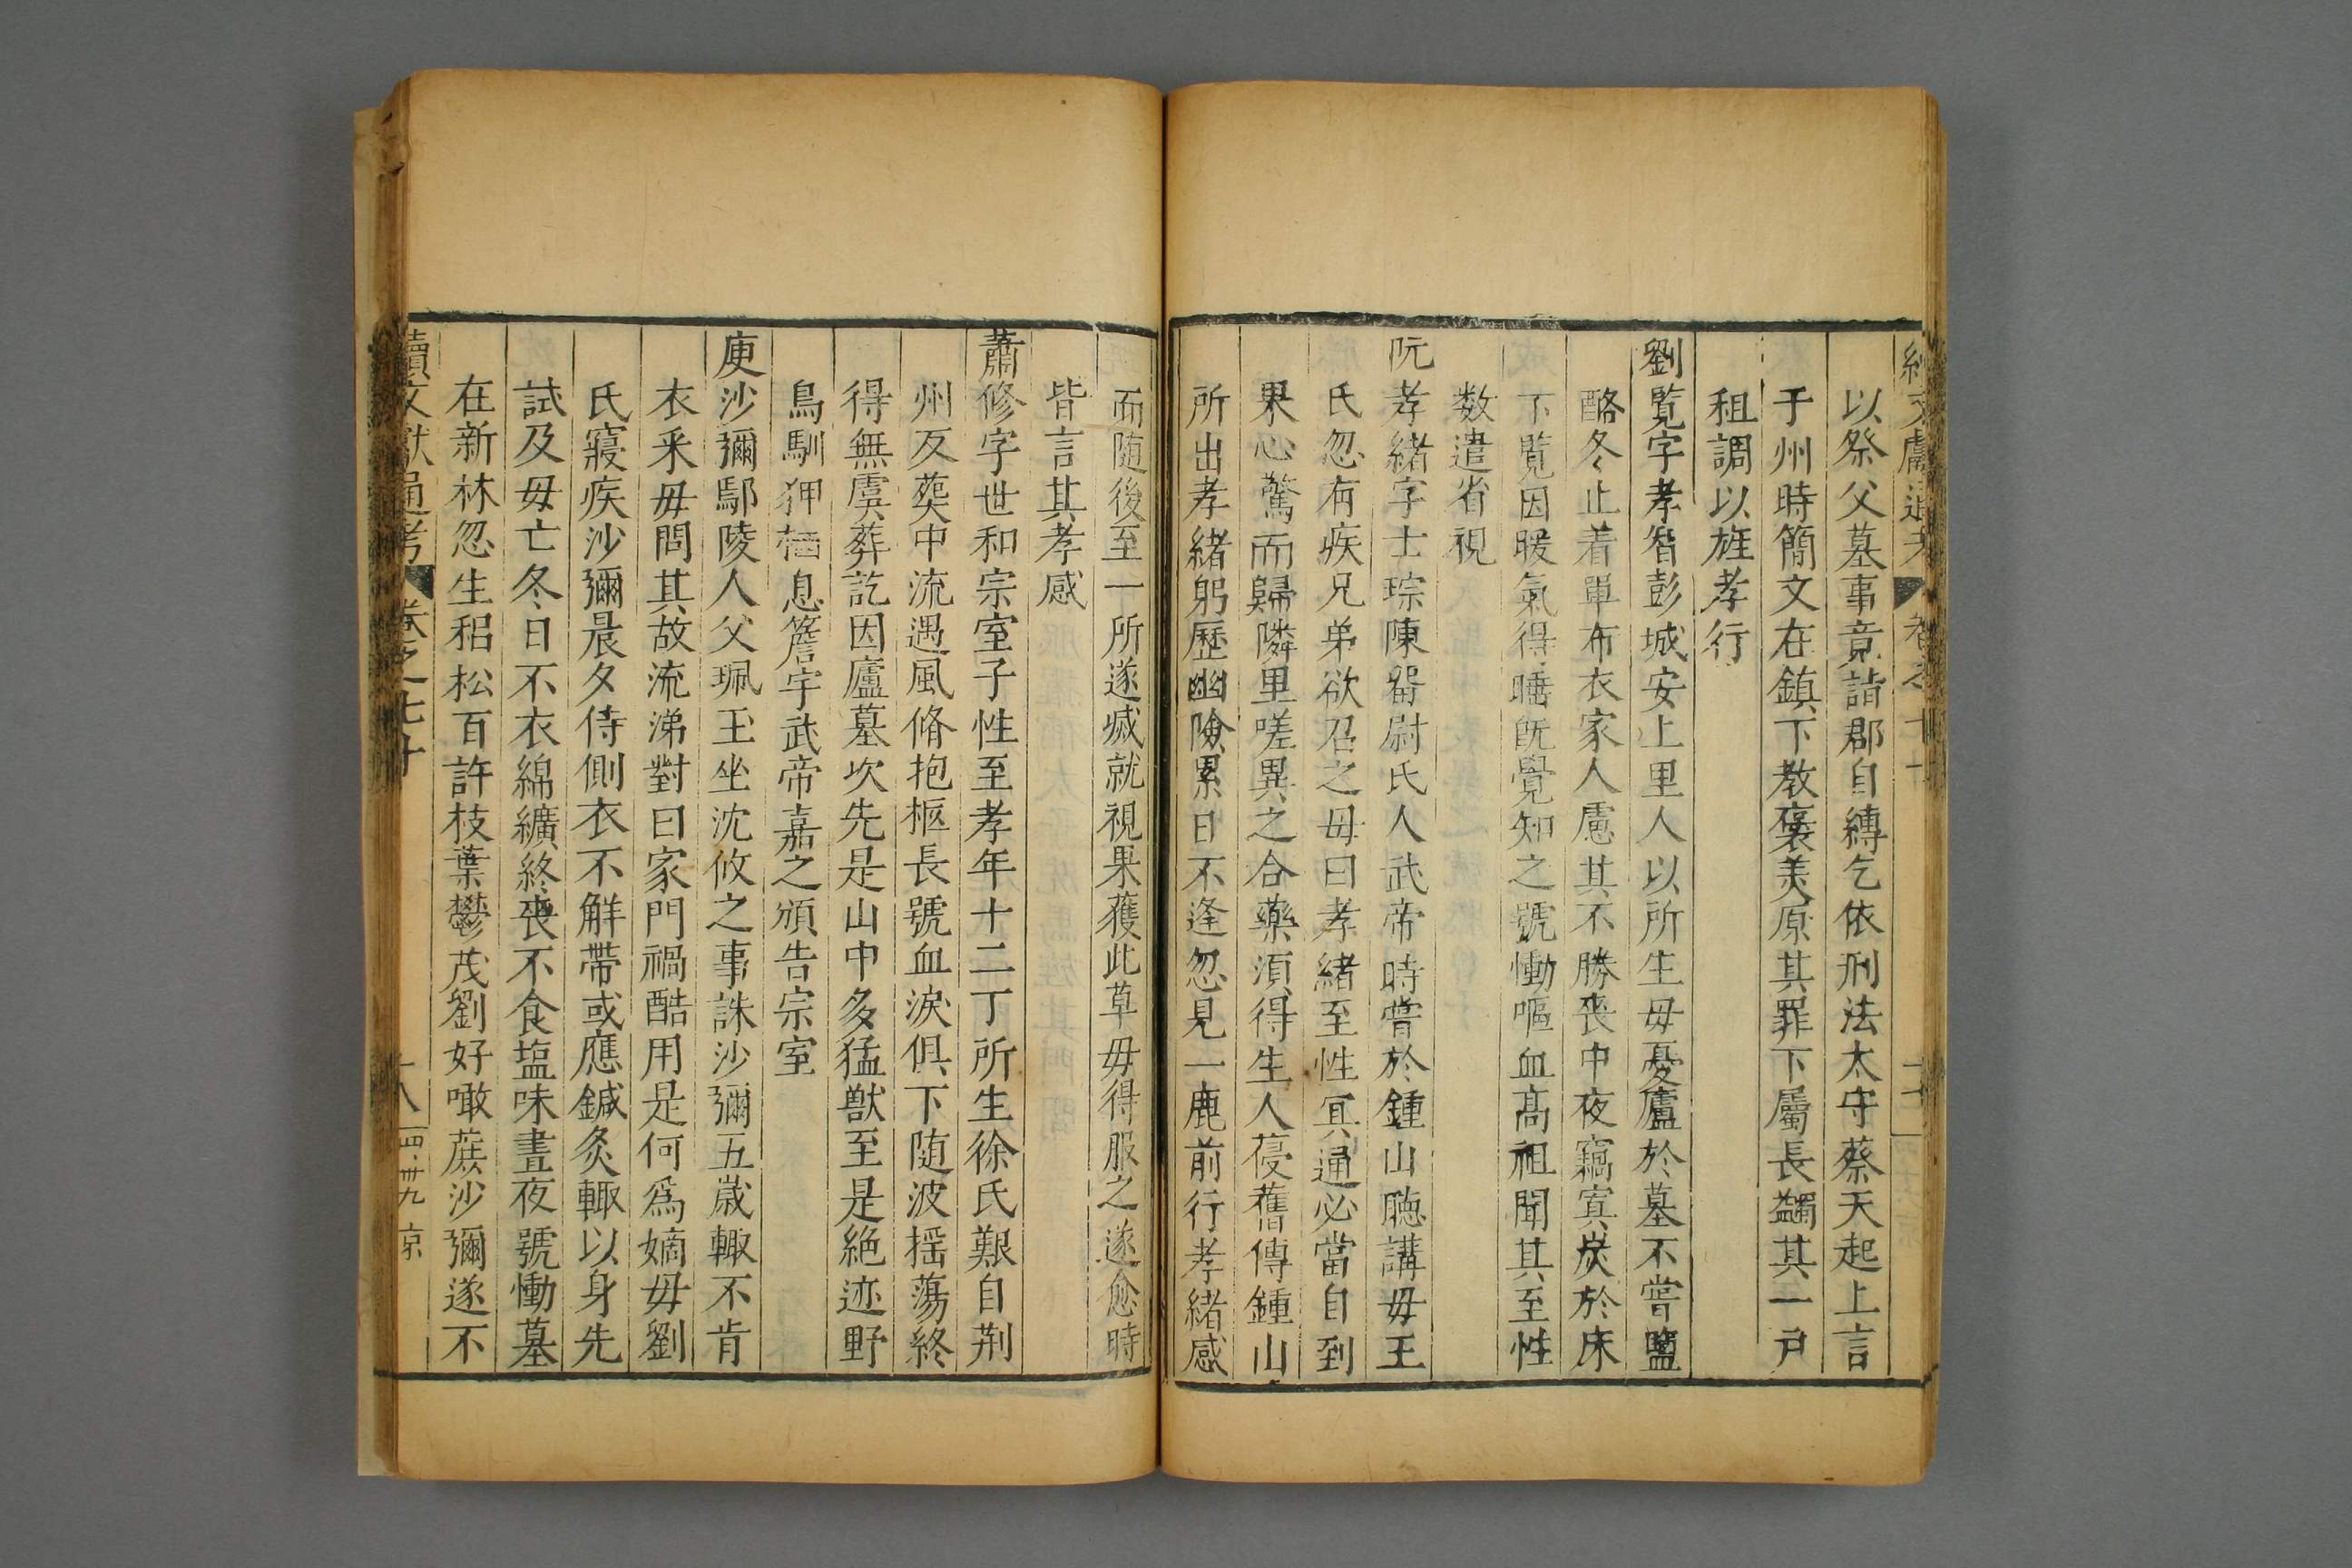 以祭父墓事竟詣郡自縛乞依刑法太守蔡天起上言
于州時簡文在鎮下教褒美原其罪下屬長蠲其一戶
租調以旌孝行
劉覧字孝智彭城安上里人以所生母憂廬於墓不嘗鹽
酪冬止着單布衣家人慮其不勝喪中夜竊寘炭於床
下覧因暖氣得睡旣覺知之號慟嘔血高祖聞其至性
数遣省視
阮孝緒字士琮陳留尉氏人武帝時嘗於鍾山聽講毋王
氏忽有疾兄弟欲召之毋曰孝緒至性冥通必當自到
果心驚而歸隣里嗟異之合藥湏得生人葠舊傳鍾山
所出孝緒躬歷幽險累日不逢忽見一鹿前行孝緒感
而随後至一所遂滅就視果獲此草毋得服之遂愈時
皆言其孝感
蕭修字世和宗室子性至孝年十二丁所生徐氏艱自荆
州反葬中流遇風脩抱柩長號血淚俱下随波揺蕩終
得無虞葬訖因廬墓次先是山中多猛獸至是絶迹野
鳥馴狎栖息簷宇武帝嘉之頒告宗室
庾沙彌鄢陵人父珮玉坐沈攸之事誅沙彌五歲輙不肯
衣釆毋問其故流涕對曰家門禍酷用是何爲嫡毋劉
氏寢疾沙彌晨夕侍側衣不觧帶或應鍼灸輙以身先
試及毋亡冬日不衣綿纊終喪不食塩味晝夜號慟墓
在新林忽生稆松百許枝葉鬱茂劉好噉蔗沙彌遂不
續文獻通考 卷之七十 十八 四·卅九 京